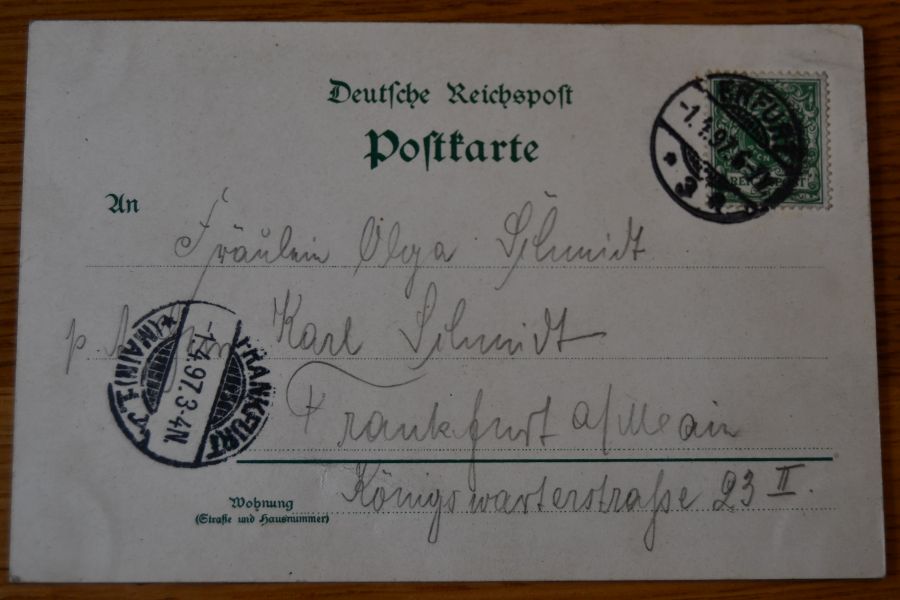 Deutsche Reichspost
Postkarte
ERFURT
-1.4.97.
* 3 *
An
Fräulein Olga Schmidt
p. Karl Schmidt
FRANKFURT (MAIN) 1. *
-1.4.97.3-4N.
Frankfurt a/Main
Königswarterstraße 23 II.
Wohnung
(Straße und Hausnummer)